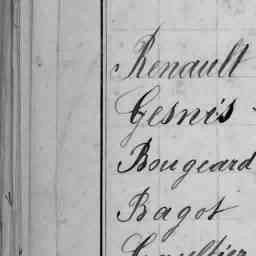 Renault
Gesnis
Bougeard
Bagot
Gaultier